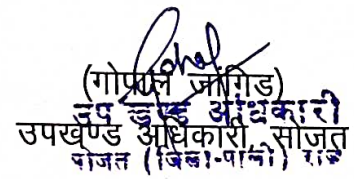 (गोपाल जाँगिड)
उप खण्ड अधिकारी
उपखण्ड अधिकारी, सोजत
सोजत (जिला-पाली) राज